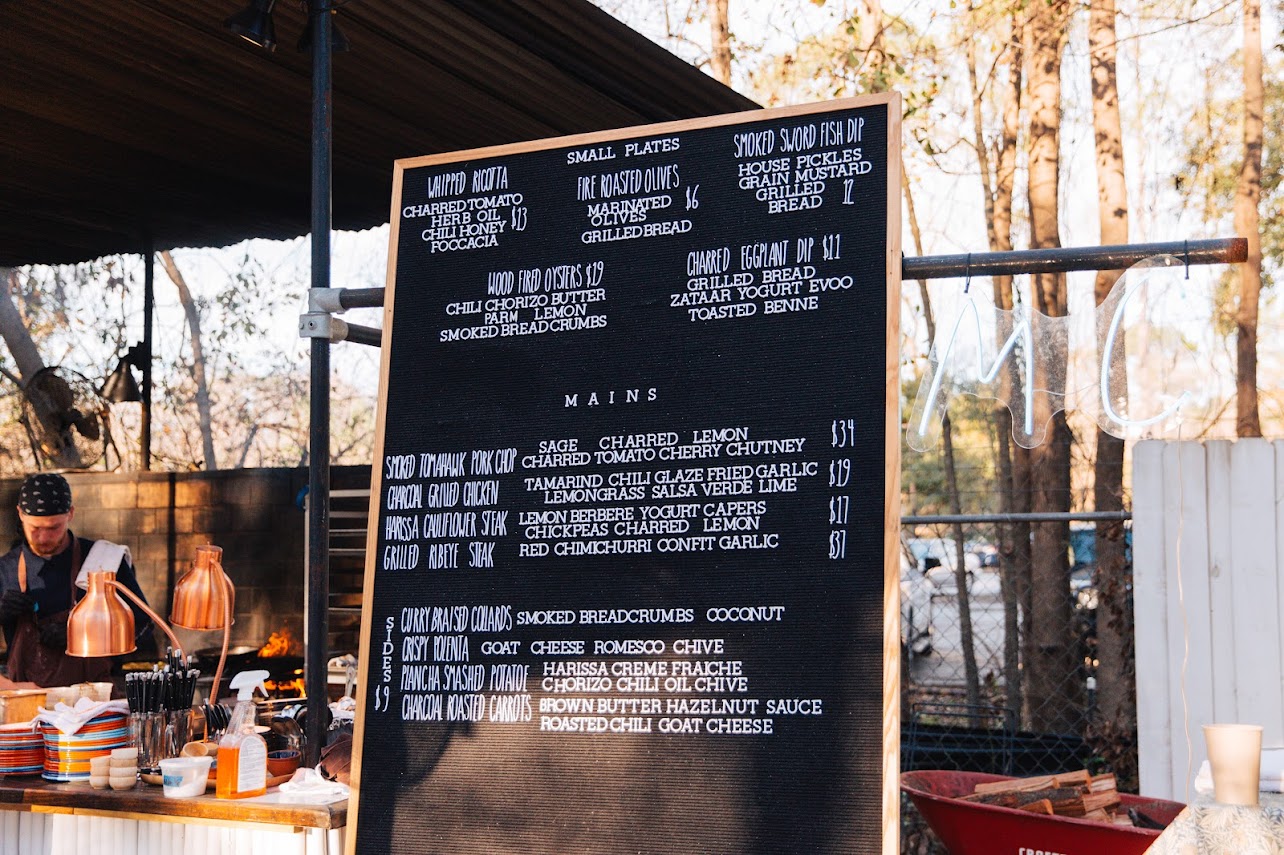 SMALL PLATES
WHIPPED RICOTTA
CHARRED TOMATO
HERB OIL $13
CHILI HONEY
FOCCACIA
FIRE ROASTED OLIVES
MARINATED $6
OLIVES
GRILLED BREAD
SMOKED SWORD FISH DIP
HOUSE PICKLES
GRAIN MUSTARD
GRILLED 12
BREAD
WOOD FIRED OYSTERS $19
CHILI CHORIZO BUTTER
PARM LEMON
SMOKED BREAD CRUMBS
CHARRED EGGPLANT DIP $11
GRILLED BREAD
ZATAAR YOGURT EVOO
TOASTED BENNE
MAINS
SMOKED TOMAHAWK PORK CHOP SAGE CHARRED LEMON $34
CHARRED TOMATO CHERRY CHUTNEY
CHARCOAL GRILLED CHICKEN TAMARIND CHILI GLAZE FRIED GARLIC $19
LEMONGRASS SALSA VERDE LIME
HARISSA CAULIFLOWER STEAK LEMON BERBERE YOGURT CAPERS $17
CHICKPEAS CHARRED LEMON
GRILLED RIBEYE STEAK RED CHIMICHURRI CONFIT GARLIC $37
SIDES $9
CURRY BRAISED COLLARDS SMOKED BREADCRUMBS COCONUT
CRISPY POLENTA GOAT CHEESE ROMESCO CHIVE
PLANCHA SMASHED POTATOE HARISSA CREME FRAICHE
CHORIZO CHILI OIL CHIVE
CHARCOAL ROASTED CARROTS BROWN BUTTER HAZELNUT SAUCE
ROASTED CHILI GOAT CHEESE
MC